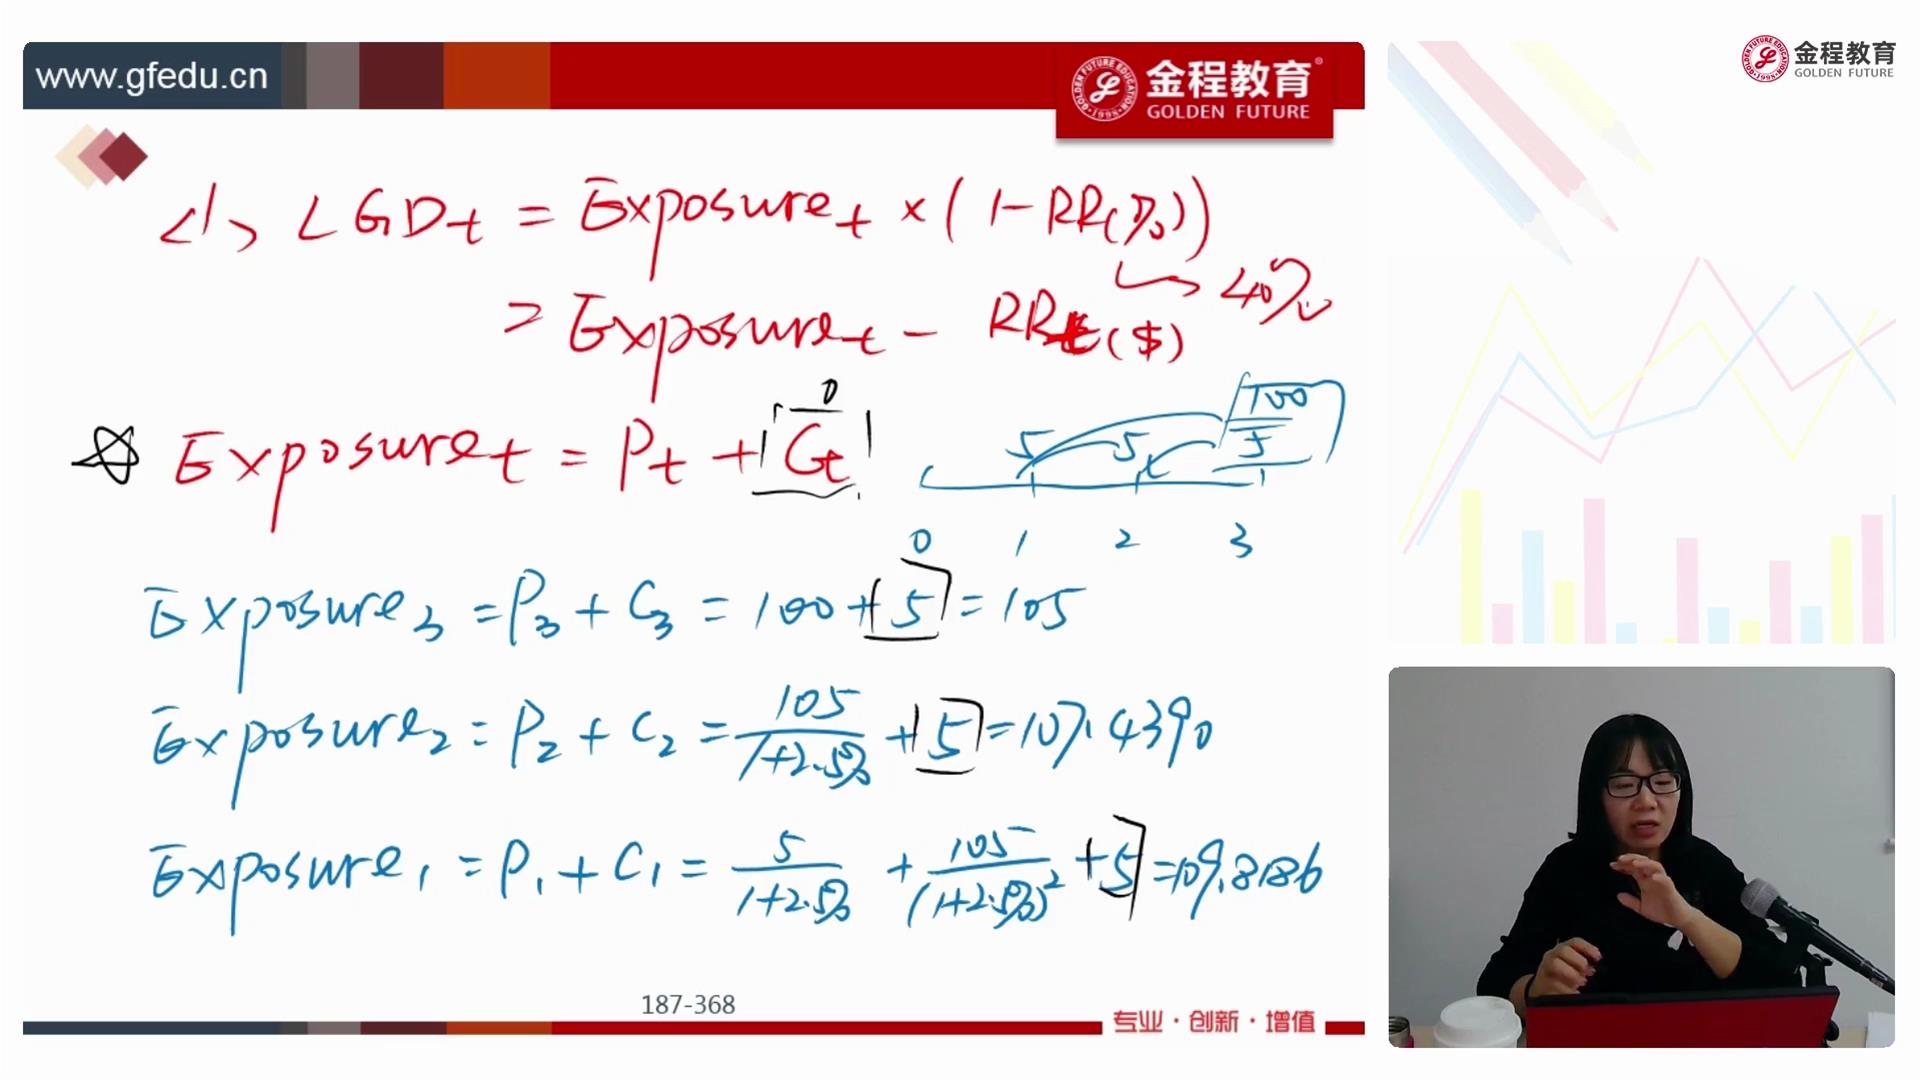 www.gfedu.cn
金程教育
GOLDEN FUTURE
金程教育
GOLDEN FUTURE
<1> LGDt = Exposuret × (1-RR(%))
40%
= Exposuret - RRt($)
0
Exposuret = Pt + Ct
5 5 100
5
0 1 2 3
Exposure3 = P3 + C3 = 100 + 5 = 105
Exposure2 = P2 + C2 = 105/1+2.5% + 5 = 107.4390
Exposure1 = P1 + C1 = 5/1+2.5% + 105/(1+2.5%)² + 5 = 109.8186
187-368
专业·创新·增值